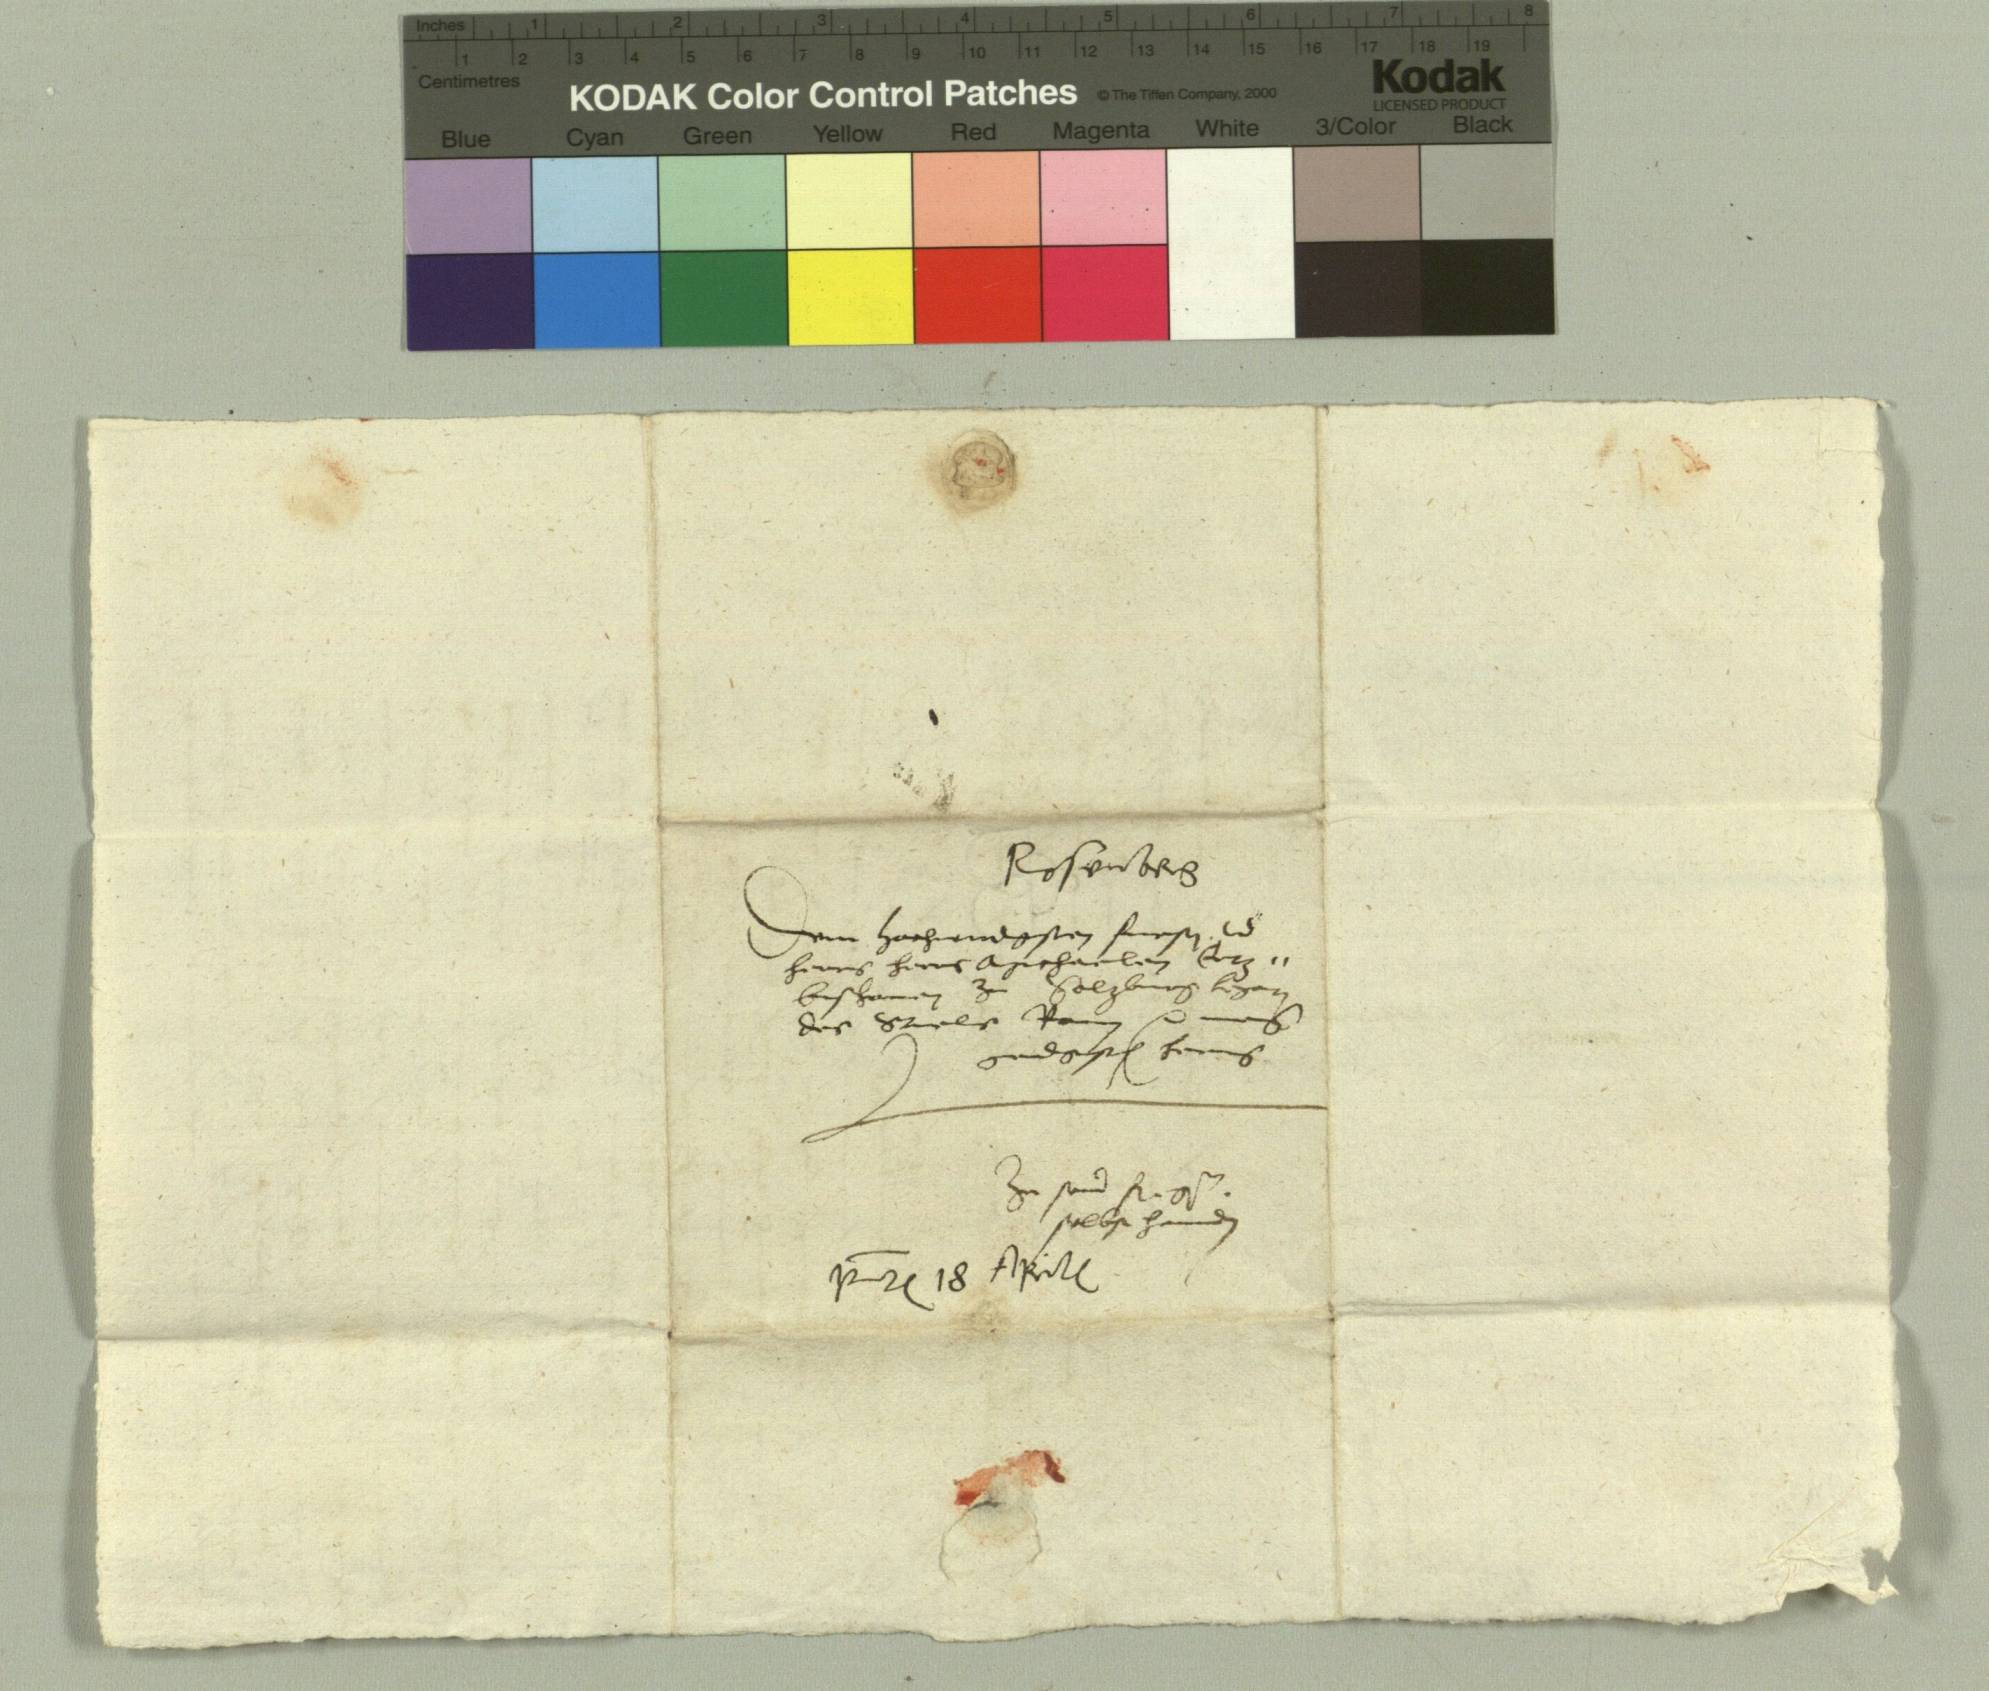 Inches 1 2 3 4 5 6 7 8
1 2 3 4 5 6 7 8 9 10 11 12 13 14 15 16 17 18 19
Centimetres
KODAK Color Control Patches © The Tiffen Company, 2000 Kodak
LICENSED PRODUCT
Blue Cyan Green Yellow Red Magenta White 3/Color Black
Rosenberg
Dem hochwirdgisten fursten
herrn herrn Michaelen Ertz
bischouen zu Salzburg Legaten
des Stuels Rom meinem
gnedgisten herrn
Zu seiner
selbs hannden
18 Aprill